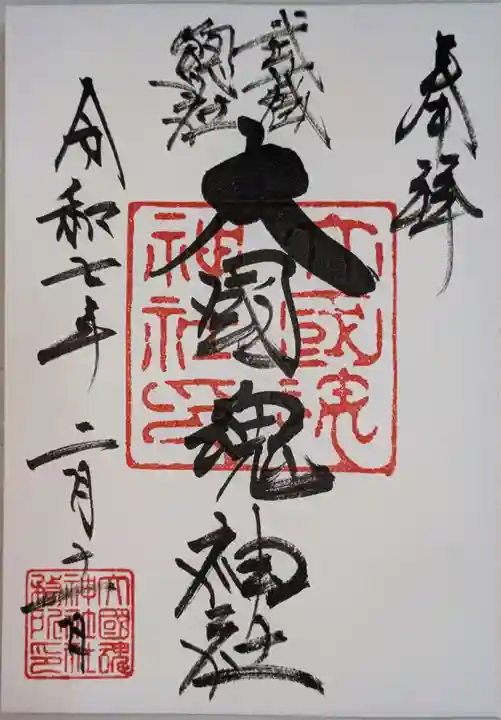 奉拝
武蔵
総社
大國魂神社
大國魂
神社印
令和七年二月十一日
大國魂
神社社
務所印